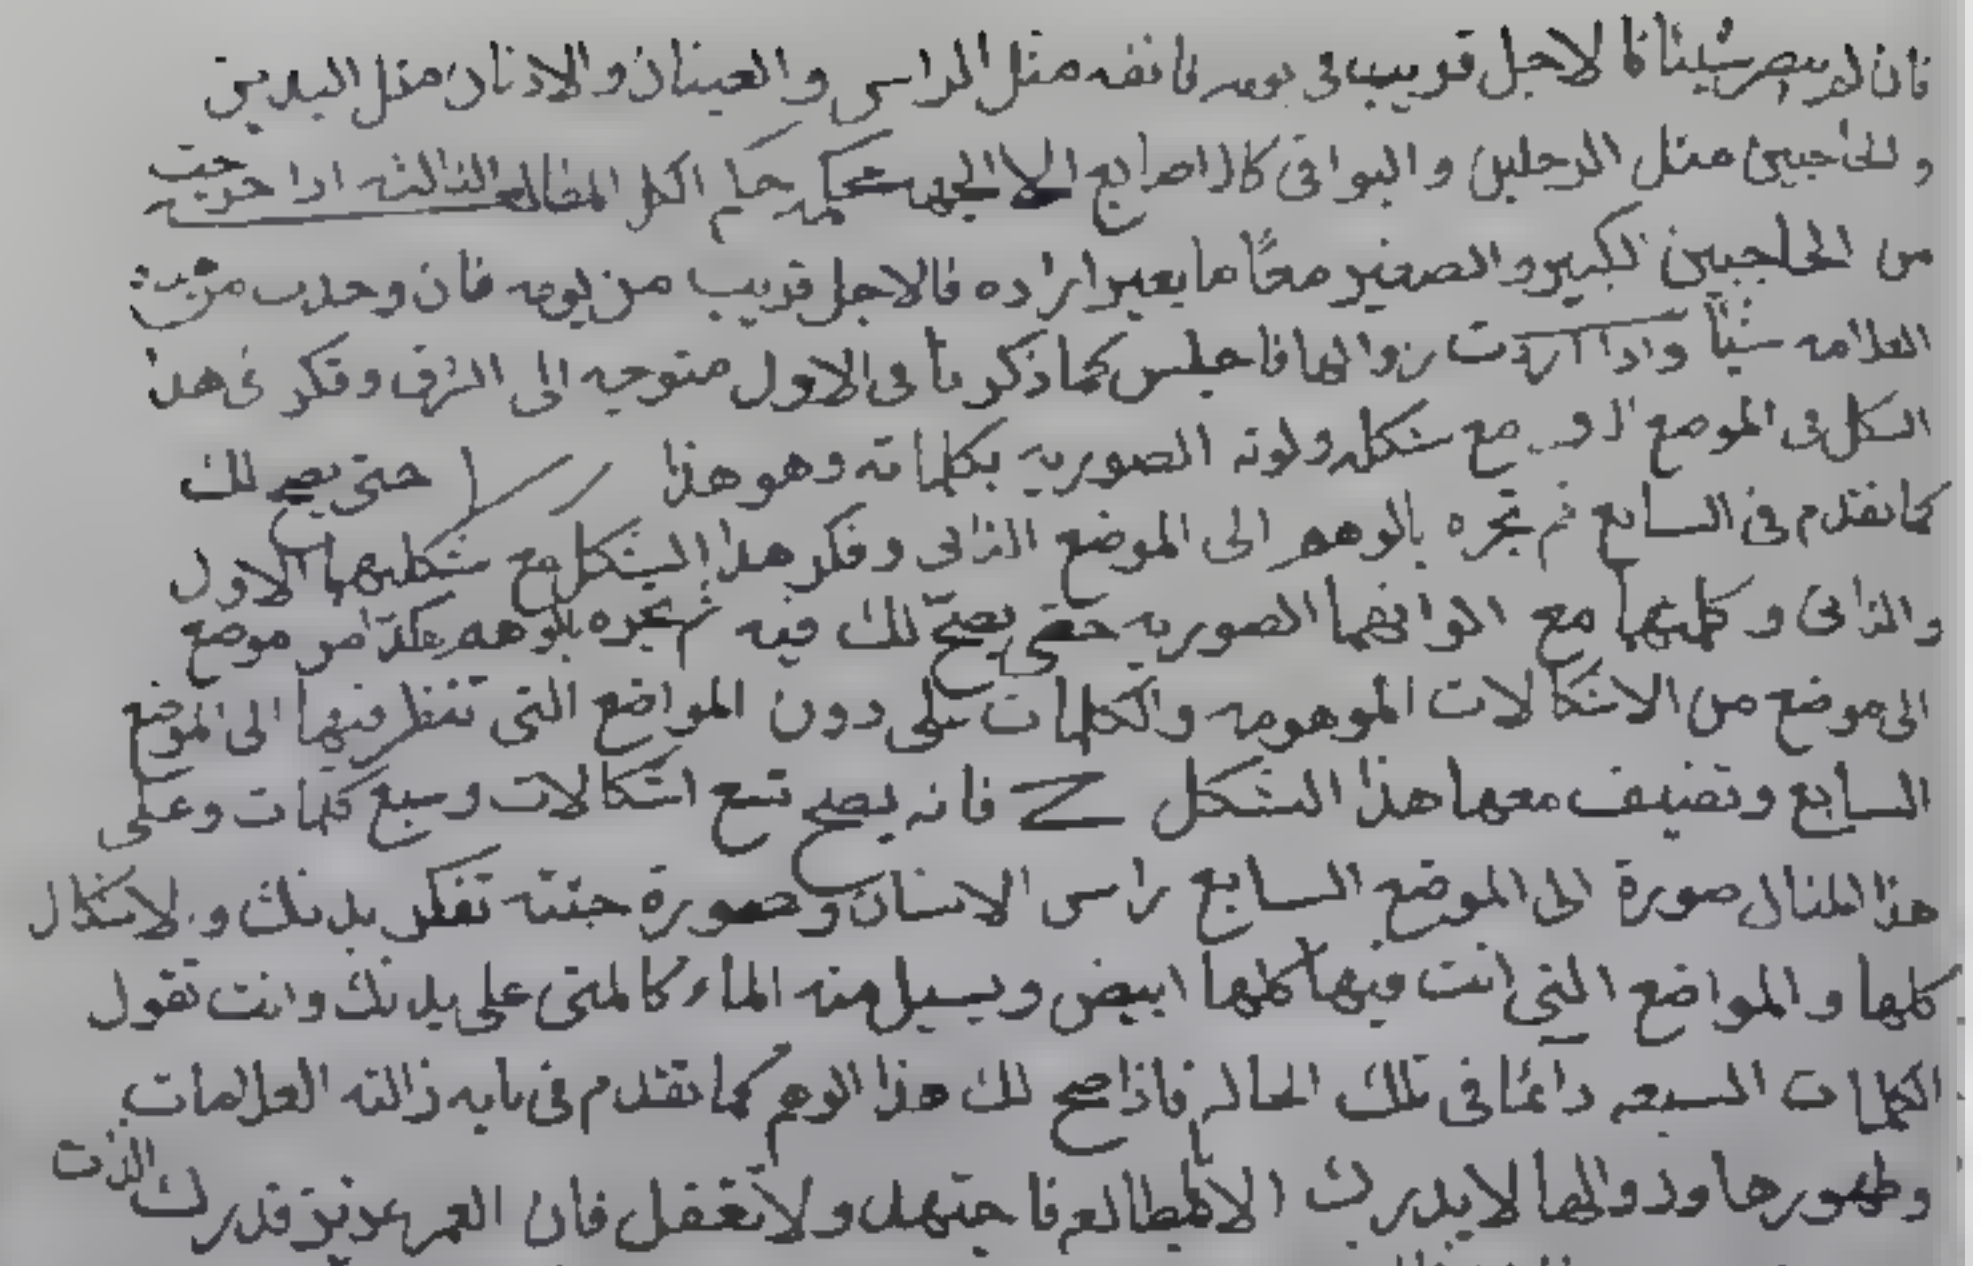 فان لم يبصر شيئا فالاجل قريب في يومه فانفه مثل الراس والعينان والاذنان مثل اليدين
والحاجبين مثل الرجلين والبواقى كالاصابع الا الجبهه اكل المقاله الثالثه اذا
من الحاجبين الكبير والصغير معًا ما بغير اراده فالاجل قريب من يومه فان وجدت من
العلامه شيًا واذا اردت زوالها فاجلس كما ذكرنا فى الاول متوجه الى الشرق وفكر فى هذا
الشكل فى الموضع الاول مع شكله ولونه الصوريه بكلماته وهو هذا حتى يصح لك
كما تقدم فى السابع ثم تجره بالوهم الى الموضع الثانى وفكر هذا الشكل مع شكليهما الاول
والثانى وكلمتهما مع الوانهما الصوريه حتى يصح لك فيه ثم تجره بالوهم هكذا من موضع
الى موضع من الاشكالات الموهومه والكلمات على دون المواضع التى تنظر فيها الى الموضع
السابع وتضيف معها هذا الشكل فانه يصح تسع اشكالات وسبع كلمات وعلى
هذا المثال صورة الى الموضع السابع راس الانسان وصورة جثته تفكر بدنك والاشكال
كلها والمواضع التى انت فيها كلها ابيض ويسيل منه الماء كالمنى على بدنك وانت تقول
الكلمات السبعه دآئما فى تلك الحاله فاذا صح لك هذا الوهم كما تقدم فى بابه زالته العلامات
وظهورها وزوالها لا يدرك الا بالمطالعه فاجتهد ولا تغفل فان العمر عزيز قدرك